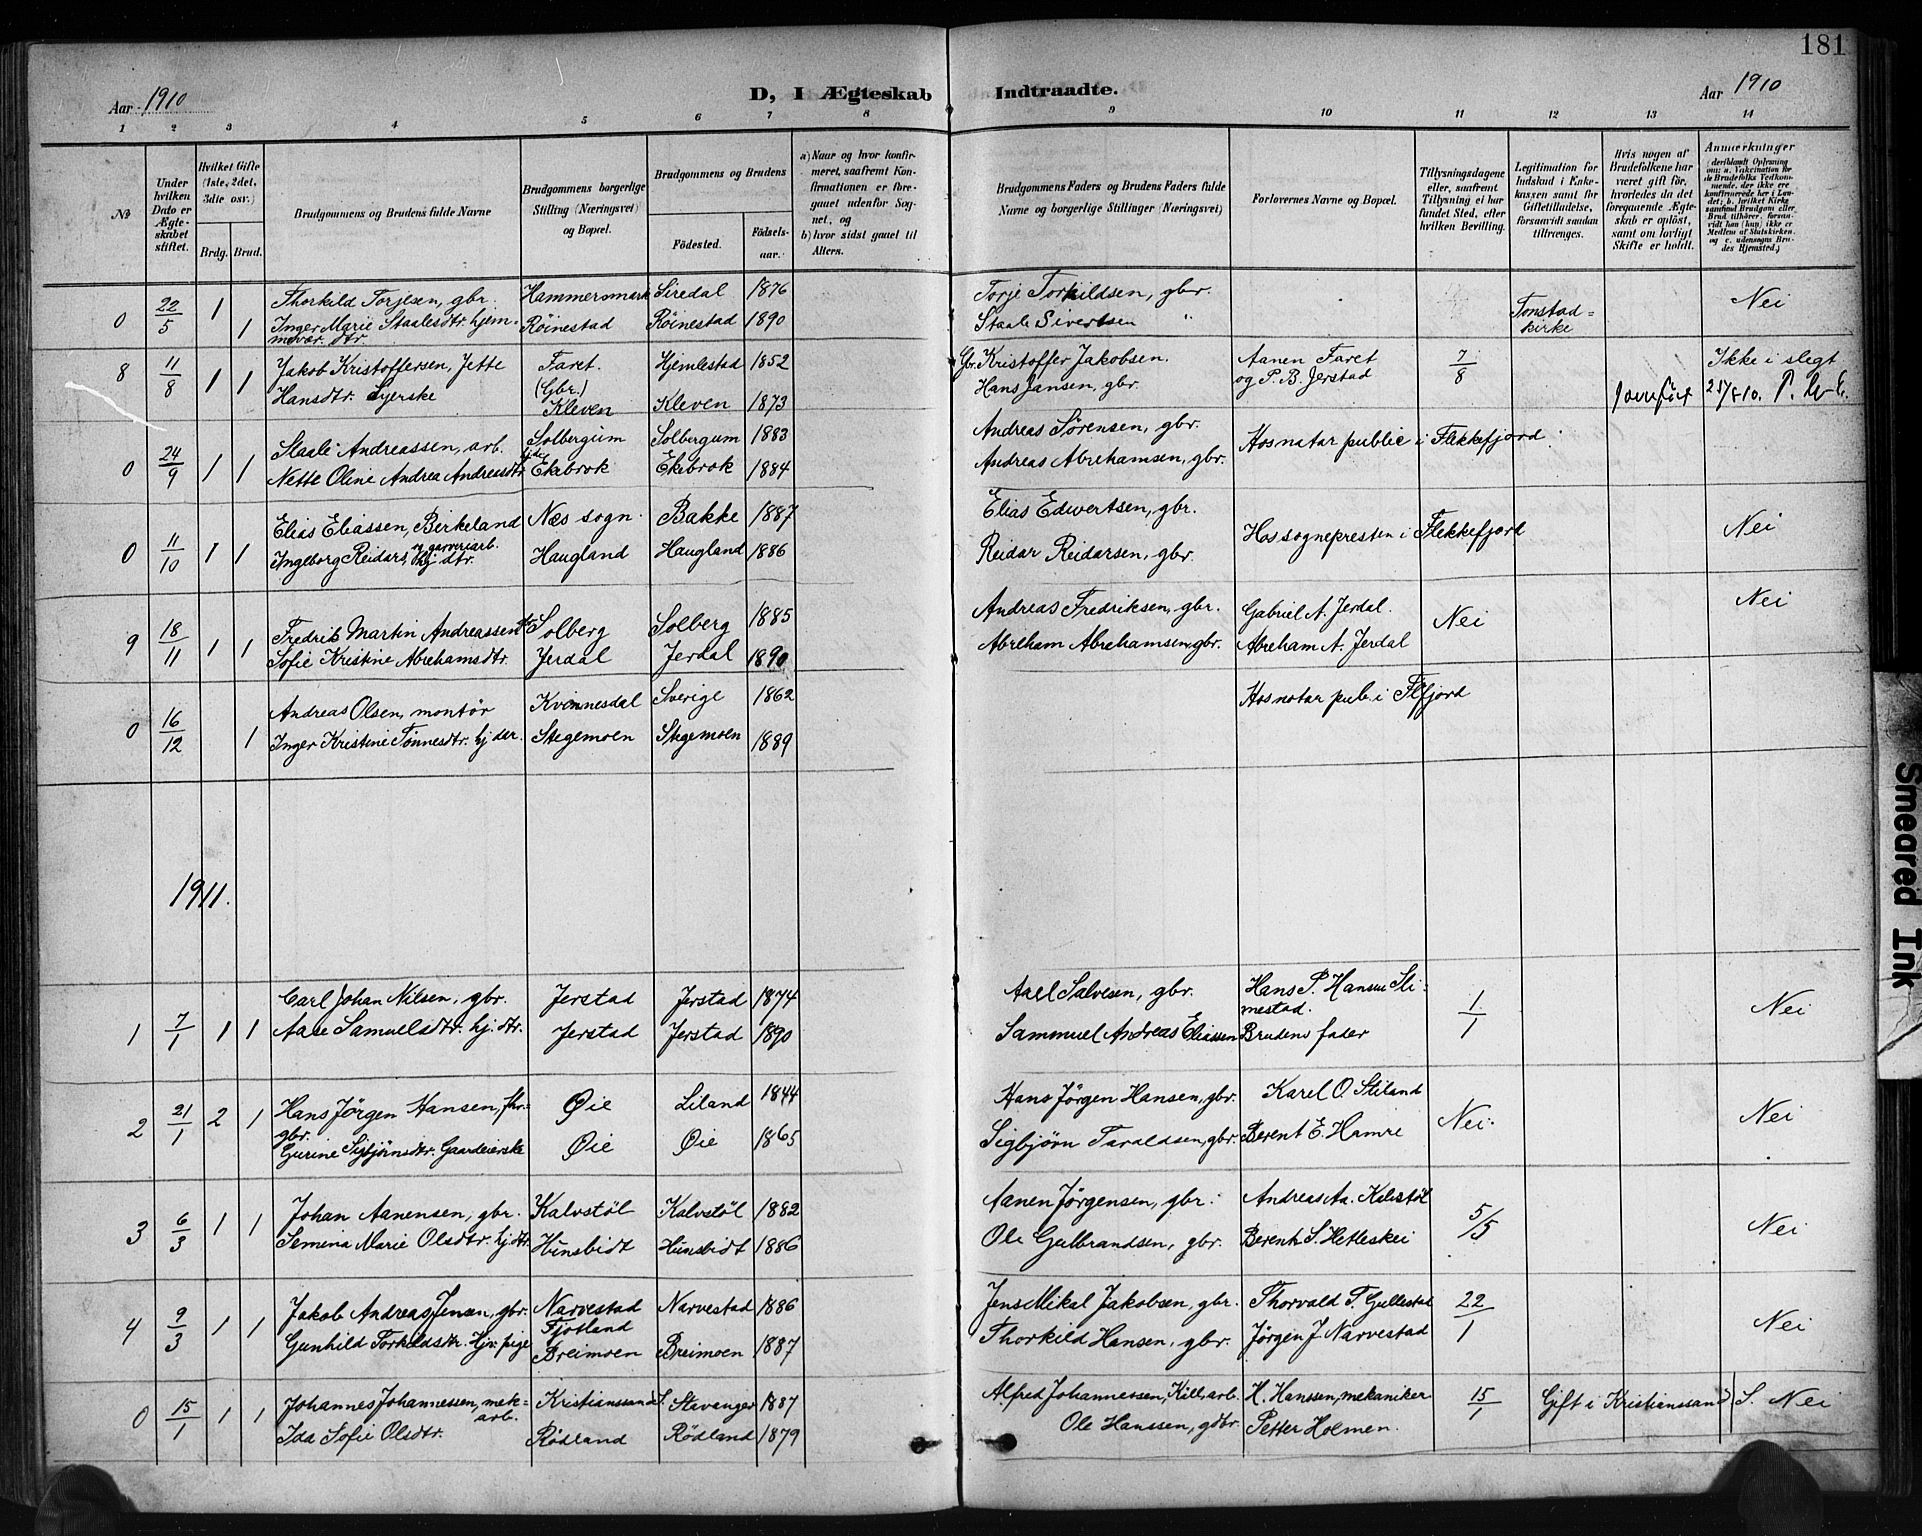 181
Aar 1910 D, I Ægteskab Indtraadte. Aar 1910
1 2 3 4 5 6 7 8 9 10 11 12 13 14
No
Under hvilken Dato er Ægteskabet stiftet.
Hvilket Gifte (1ste, 2det, 3die osv.)
Brdg. Brud.
Brudgommens og Brudens fulde Navne
Brudgommens borgerlige Stilling (Næringsvei) og Bopæl.
Brudgommens og Brudens
Födested. Födselsaar.
a) Naar og hvor konfirmeret, saafremt Konfirmationen er foregaaet udenfor Sognet, og
b) hvor sidst gaaet til Alters.
Brudgommens Faders og Brudens Faders fulde Navne og borgerlige Stillinger (Næringsvei)
Forlovernes Navne og Bopæl.
Tillysningsdagene eller, saafremt Tillysning ei har fundet Sted, efter hvilken Bevilling.
Legitimation for Indskud i Enkekassen samt for Giftetilladelse, forsaavidt saadan tiltrænges.
Hvis nogen af Brudefolkene har været gift för, hvorledes da det foregaaende Ægteskab er oplöst, samt om lovligt Skifte er holdt.
Anmerkninger
0 22/5 1 Thorkild Torjesen, gbr. Hammersmark Siredal 1876 Torje Torkildsen, gbr. Nei
1 Inger Marie Staalesdtr. hjemmevær. dtr. Röinestad Röinestad 1890 Staale Sivertsen " Tonstad kirke
8 11/8 1 1 Jakob Kristoffersen, Jette Faret. (Gbr.) Hjemlestad 1852 Gbr. Kristoffer Jakobsen. Aanen Faret 7/8 Ikke i slegt
Hansdtr. Syerske Kleven Kleven 1873 Hans Jansen, gbr. og P. B. Jerstad
0 24/9 1 1 Staale Andreassen, arb. Solbergum Solbergum 1883 Andreas Sørensen, gbr. Hos notar public i Flekkefjord.
Nette Oline Andrea Andreasdtr. Ekebrok Ekebrok 1884 Andreas Abrehamsen, gbr.
0 11/10 1 1 Elias Eliassen, Birkeland Næs sogn Bakke 1887 Elias Edvertsen, gbr. Hos sognepresten i Flekkefjord Nei
og garveriarb.
Ingeborg Reidars, hj. dtr. Haugland Haugland 1886 Reidar Reidarsen, gbr.
9 18/11 1 1 Fredrik Martin Andreassen Solberg Solberg 1885 Andreas Fredriksen, gbr. Gabriel A. Jerdal. Nei Nei
Sofie Kristine Abrehamsdtr. Jerdal Jerdal 1890 Abreham Abrehamsen, gbr. Abreham A. Jerdal
0 16/12 Andreas Olsen, montør Kvinnesdal Sverige 1862 Hos notar pub. i Flfjord
1 Inger Kristine Tønnesdtr. hj. Stegemoen Stegemoen 1889
1911.
1 7/1 1 1 Carl Johan Nilsen, gbr. Jerstad Jerstad 1874 Axel Salvesen, gbr. Hans P. Hansen Slimestad. 1/1 Nei
Aase Samuelsdtr. hj. dtr. Jerstad Jerstad 1890 Sammuel Andreas Eliassen Brudens fader
2 21/1 2 1 Hans Jörgen Hansen, gbr. Øie Liland 1844 Hans Jörgen Hansen, gbr. Karel O. Stiland Nei. Nei
Gurine Sigbjörnsdtr. Gaardeierske Øie Øie 1865 Sigbjörn Taraldsen, gbr. Berent E. Hamre
3 6/3 1 1 Johan Aanensen, gbr. Kalvstöl Kalvstöl 1882 Aanen Jörgensen, gbr. Andreas Aa. Kalvstöl 5/5 Nei
Semena Marie Olsdtr. hj. dtr. Hunsbidt Hunsbidt 1886 Ole Gulbrandsen, gbr. Berent S. Hetleskei
4 9/3 1 1 Jakob Andreas Jensen, gbr. Narvestad Fjotland Narvestad 1886 Jens Mikal Jakobsen, gbr. Thorvald T. Gullestad 22/1 Nei
Gunhild Torkildsdtr. Hjv. pige Breimoen Breimoen 1887 Thorkild Hansen, gbr. Jörgen J. Narvestad
0 15/1 1 1 Johannes Johannessen, mek. arb. Kristianssand S. Stavanger 1887 Alfred Johannessen, arb. H. Hanssen, mekaniker 15/1 Gift i Kristianssand S. Nei
Ida Sofie Olsdtr. Rödland Rödland 1879 Ole Hanssen, gdbr. Petter Holmen.
Smeared Ink